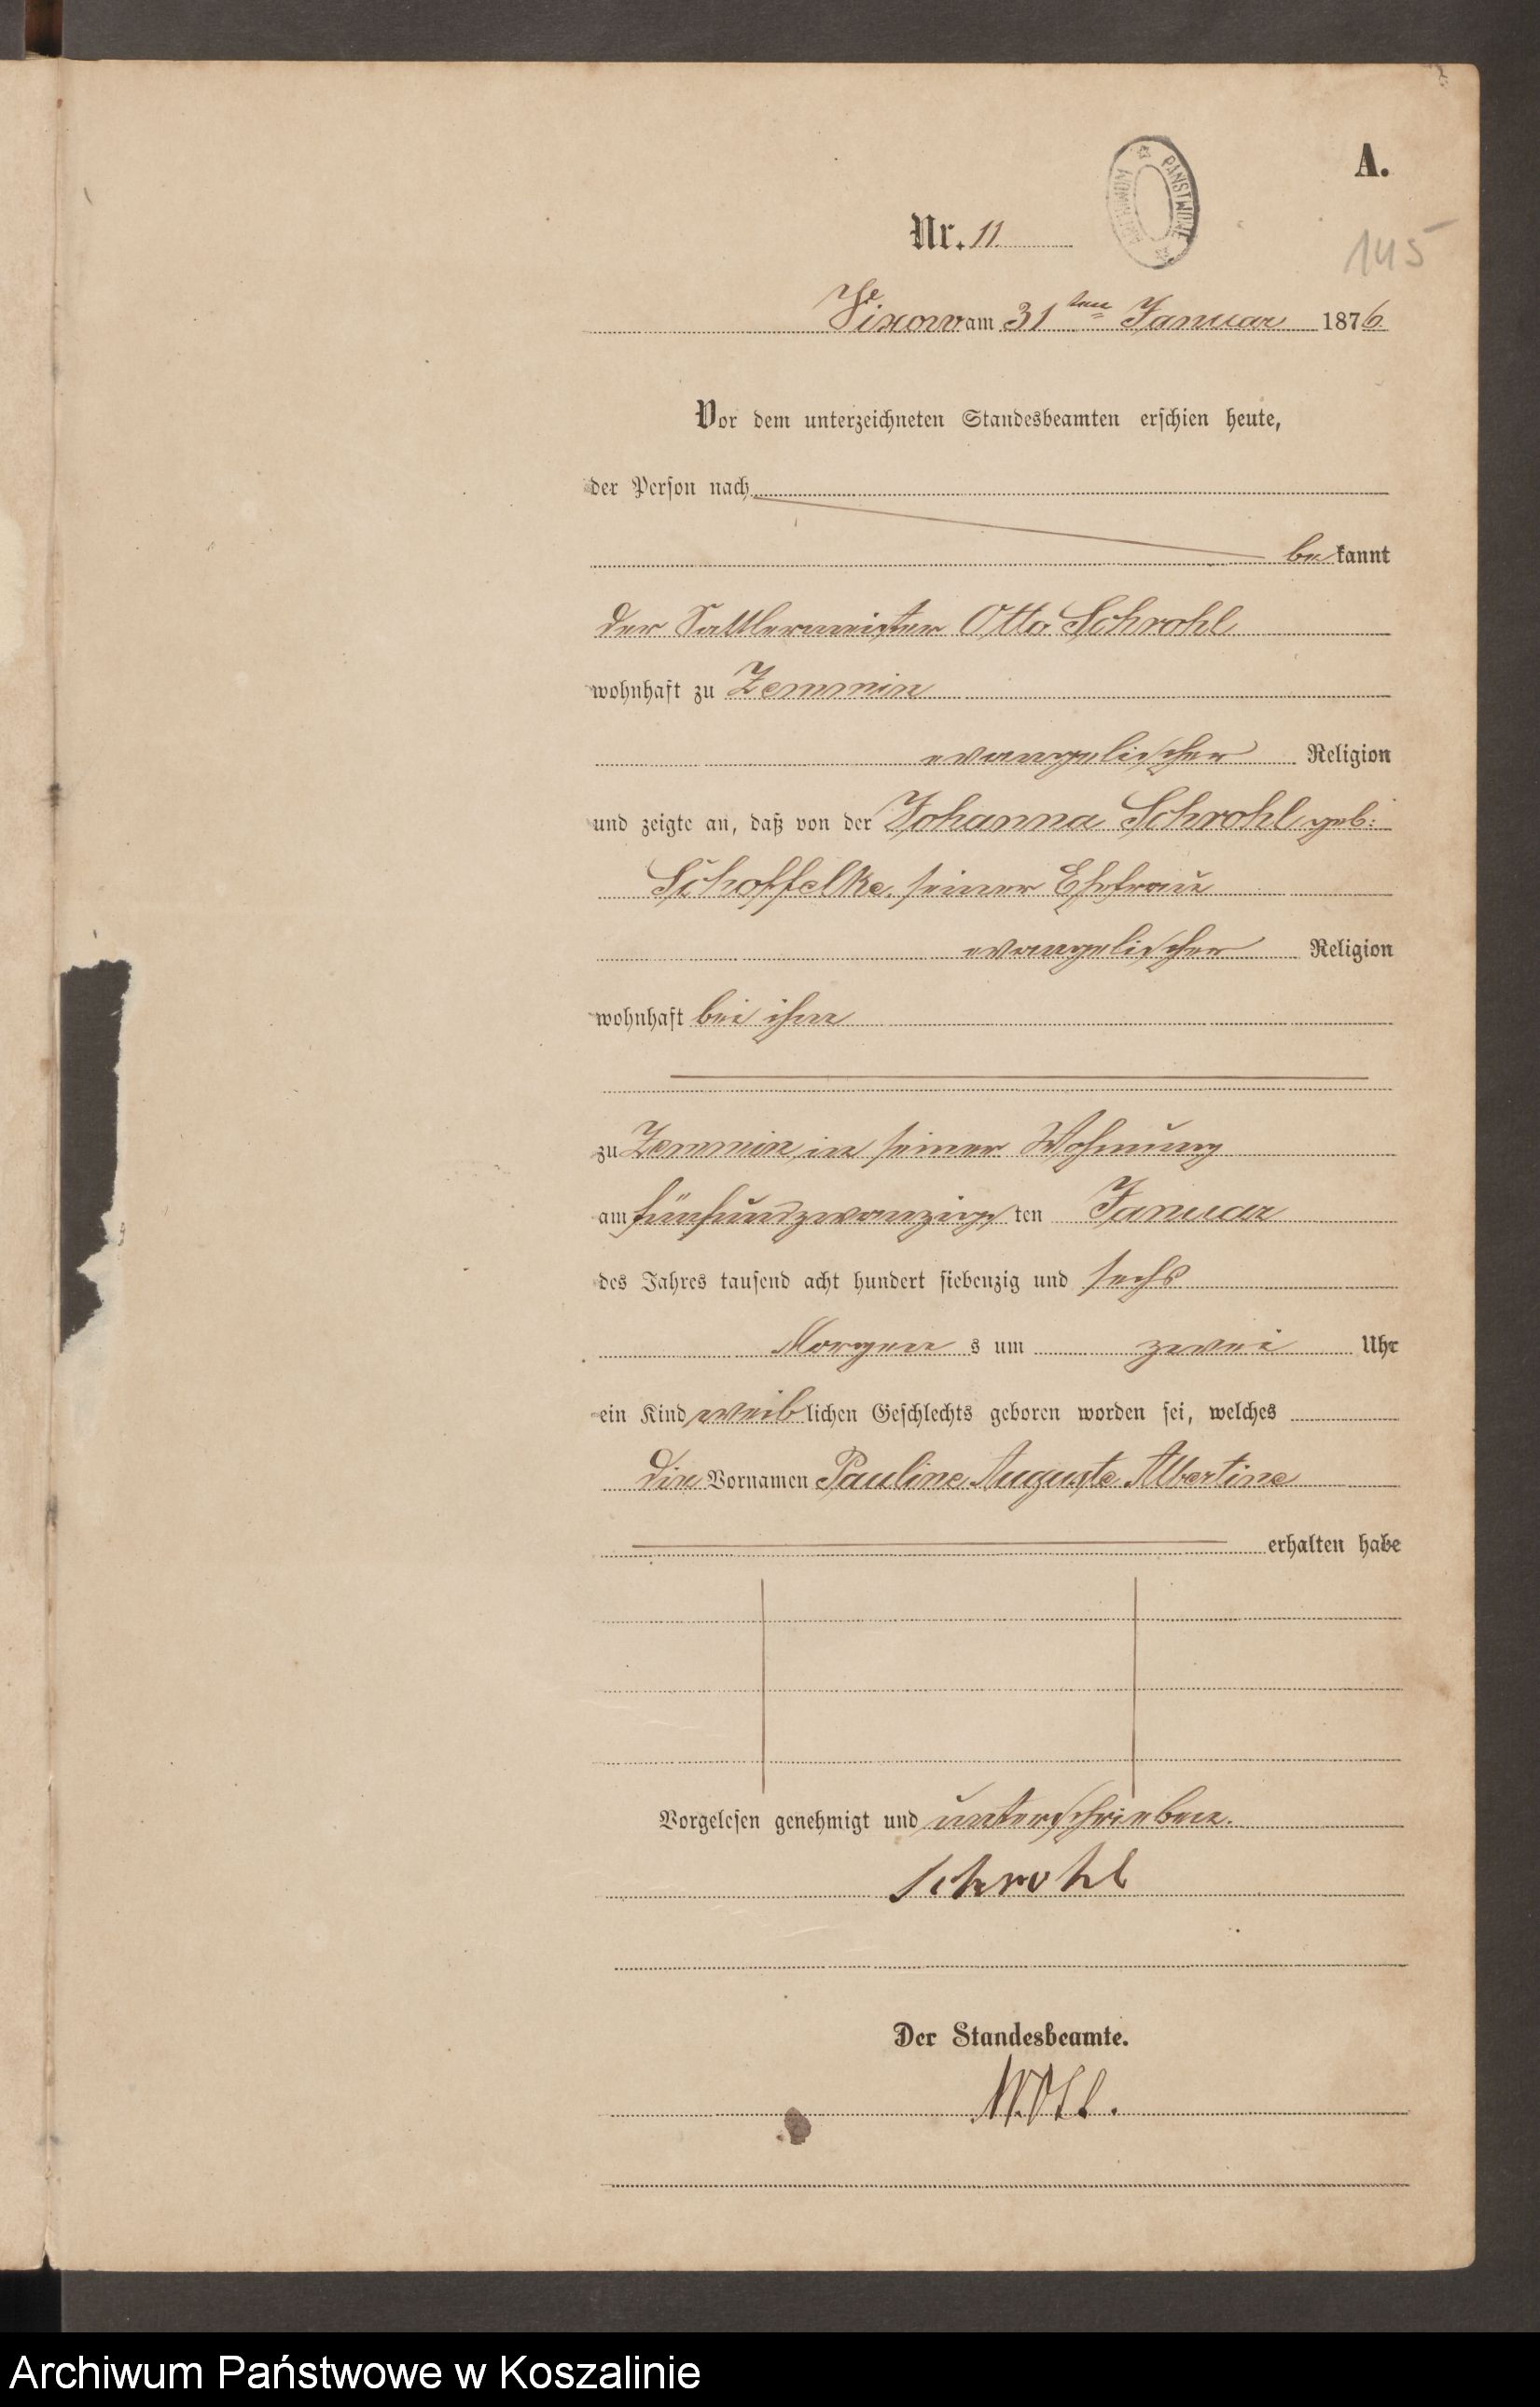 A.
ARCHIWUM PAŃSTWOWE
Nr. 11.
145
Vixow am 31ten Januar 1876.
Vor dem unterzeichneten Standesbeamten erschien heute,
der Person nach
bekannt
der Sattlermeister Otto Schrohl
wohnhaft zu Zemmin
evangelischer Religion
und zeigte an, daß von der Johanna Schrohl geb:
Schoffelke, seiner Ehefrau
evangelischer Religion
wohnhaft bei ihm
zu Zemmin in seiner Wohnung
am fünfundzwanzigsten Januar
des Jahres tausend acht hundert siebenzig und sechs
Morgens um zwei Uhr
ein Kind weiblichen Geschlechts geboren worden sei, welches
die Vornamen Pauline Auguste Albertine
erhalten habe
Vorgelesen genehmigt und unterschrieben.
Schrohl
Der Standesbeamte.
Archiwum Państwowe w Koszalinie